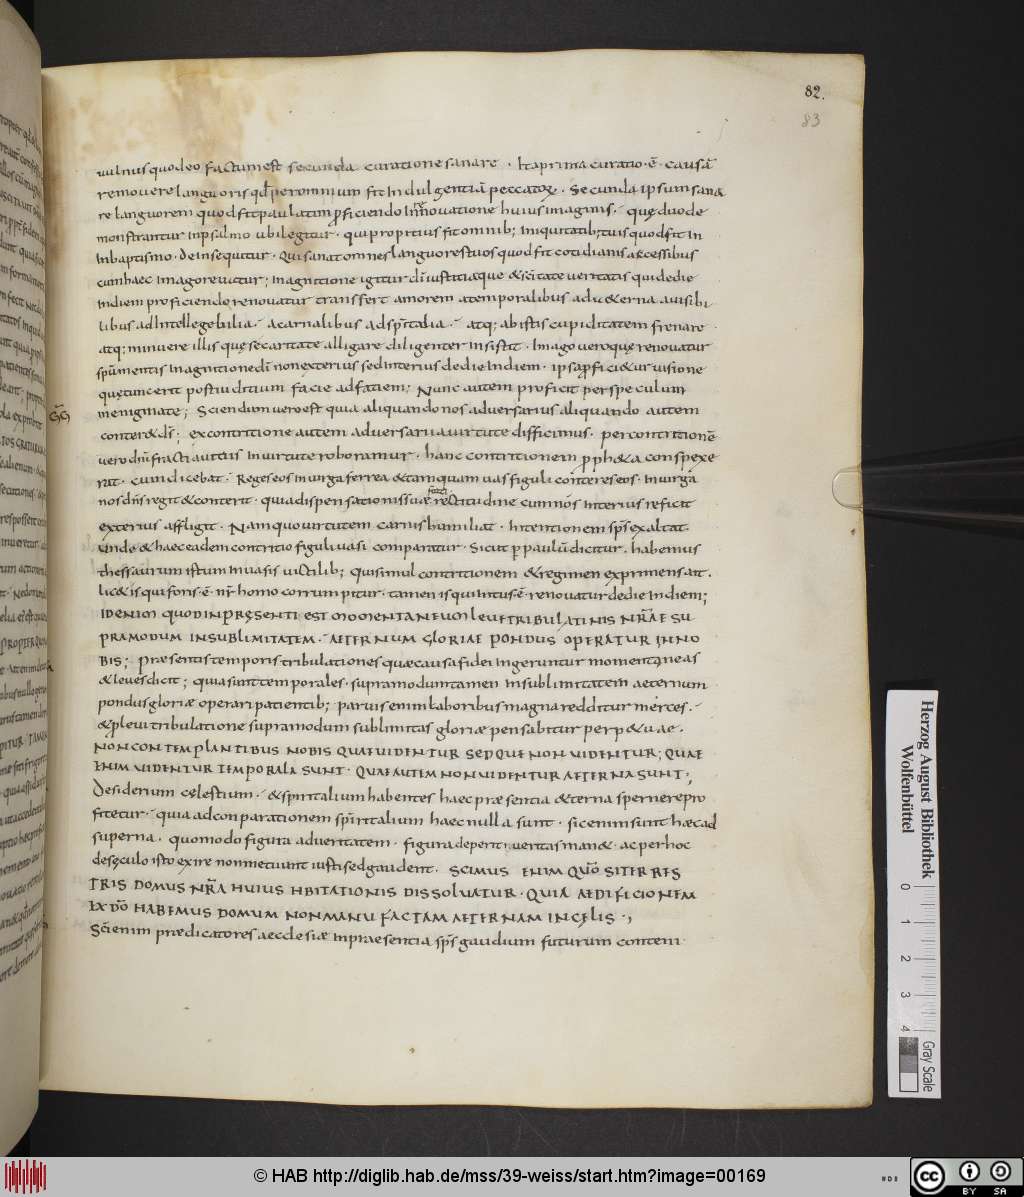 82.
83
vulnus quod eo factum est secunda curatione sanare · Ita prima curatio · ē · causā
removere languoris qđ per omnium fit Indulgentiā peccatoꝝ · Secunda ipsum sana
re languorem quod fit paulatim ꝓficiendo In renovatione huius imaginis · quę duo de
monstrantur In psalmo ubi legitur · qui propitius fit omnib; Iniquitatib; tuis quod fit In
In baptismo · De In sequitur · Qui sanat omnes languores tuos quod fit cotidianis accessibus
cum haec Imago renovatur; In agnitione igitur dī iustitiaque & scītate veritatis qui de die
In diem proficiendo renovatur transfert amorem a temporalibus ad &erna a visibi
libus ad Intellegebilia · a carnalibus ad spīitalia · atq; ab istis cupiditatem frenare
atq; minuere illis quę se caritate alligare diligenter Insistit · Imago vero quę renovatur
spū mentis In agnitione dī non exterius sed Interius de die In diem · ipsa ꝓfici&ur visione
quę tunc erit post iudicium facie ad faciem; Nunc autem proficit per speculum
In enigmate; Sciendum vero est quia aliquando nos adversarius aliquando autem
conter& dš; ex contritione autem adversarii a virtute difficimus · per contritionē
vero dnī fracti a vitiis In virtute roboramur · hanc contritionem ꝓph&a conspexe
rat · cum dicebat · Reges eos In virga ferrea & tamquam vas figuli conteres eos · In virga
nos dnš regit & conterit · quia dispensationis suæ rectitudine cum nos Interius reficit
exterius affligit · Nam quo virtutem carnis humiliat · Intentionem spš exaltat
unde & haec eadem contritio figuli vasi comparatur · Sicut ꝑ paulū dicitur · habemus
thessaurum istum In vasis victilib; qui simul contritionem & regimen exprimens ait ·
lic& is qui foris · ē · nr̄ homo corrumpitur · tamen is qui Intus · ē · renovatur de die In diem;
ID ENIM QUOD IN PRESENTI EST MOMENTANEUM LEVE TRIBULATINIS NR̄AE SU
PRA MODUM IN SUBLIMITATEM · AETERNUM GLORIAE PONDUS OPERATUR IN NO
BIS; præsentis temporis tribulationes quæ causa fidei Ingeruntur momentaneas
& leves dicit; quia sunt temporales · supra modum tamen In sublimitatem aeternum
pondus gloriæ operari patientib; parvis enim laboribus magna redditur merces ·
& ꝓ levi tribulatione supra modum sublimitas gloriæ pensabitur perp&uae ·
NON CONTEMPLANTIBUS NOBIS QUAE VIDENTUR SED QUE NON VIDENTUR; QUAE
ENIM VIDENTUR TEMPORALA SUNT · QUAE AUTEM NON VIDENTUR AETERNA SUNT;
Desiderium cęlestium · & spīritalium habentes haec præsentia & terna spernere pro
fitetur · quia ad conparationem spīritalium haec nulla sunt · sic enim sunt hæc ad
superna · quomodo figura ad veritatem · figura deperit; veritas man& · ac per hoc
de sęculo isto exire non metuunt iusti sed gaudent · SCIMUS ENIM QUŌ SI TERRES
TRIS DOMUS NR̄A HUIUS HBITATIONIS DISSOLVATUR · QUIA AEDIFICIONEM
EX DŌ HABEMUS DOMUM NON MANU FACTAM AETERNAM IN CĘLIS ·;
Scīt enim prædicatores aecclesiæ In praesentia spš gaudium futurum contem
Herzog August Bibliothek
Wolfenbüttel
0 1 2 3 4
Gray Scale
© HAB http://diglib.hab.de/mss/39-weiss/start.htm?image=00169
cc BY SA